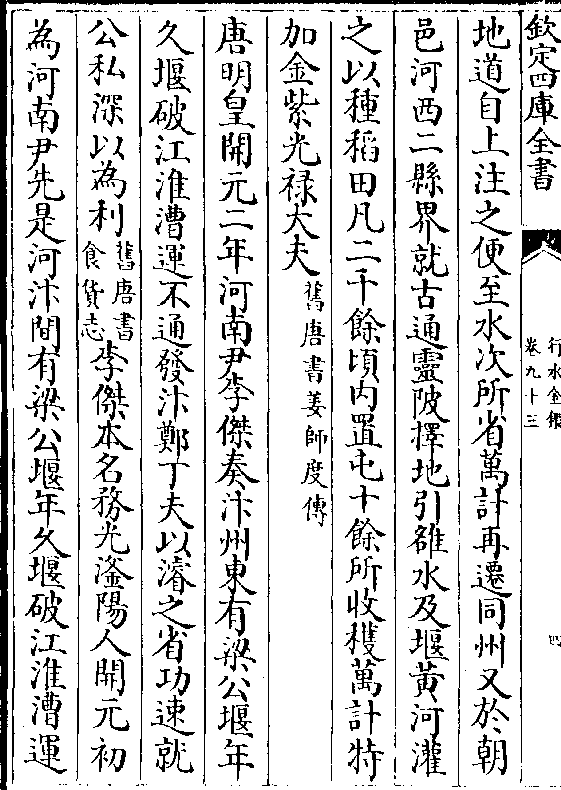 欽定四庫全書
行水金鑑
卷九十三
四
地道自上注之便至水次所省萬計再遷同州又於朝
邑河西二縣界就古通靈陂擇地引雒水及堰黃河灌
之以種稻田凡二千餘頃內置屯十餘所收穫萬計特
加金紫光祿大夫舊唐書姜師度傳
唐明皇開元二年河南尹李傑奏汴州東有梁公堰年
久堰破江淮漕運不通發汴鄭丁夫以濬之省功速就
公私深以為利舊唐書食貨志李傑本名務光滏陽人開元初
為河南尹先是河汴間有梁公堰年久堰破江淮漕運